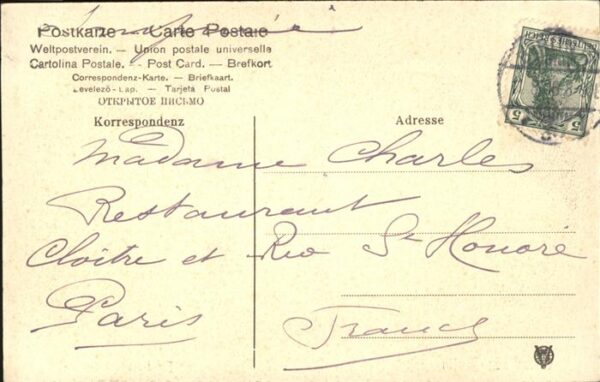 Postkarte — Carte Postale
Weltpostverein. — Union postale universelle
Cartolina Postale. — Post Card. — Brefkort
Correspondenz-Karte. — Briefkaart.
Levelező-Lap. — Tarjeta Postal
ОТКРЫТОЕ ПИСЬМО
Korrespondenz Adresse
Madame Charles
Restaurant
Cloître et Rio St Honoré
Paris France
5 5